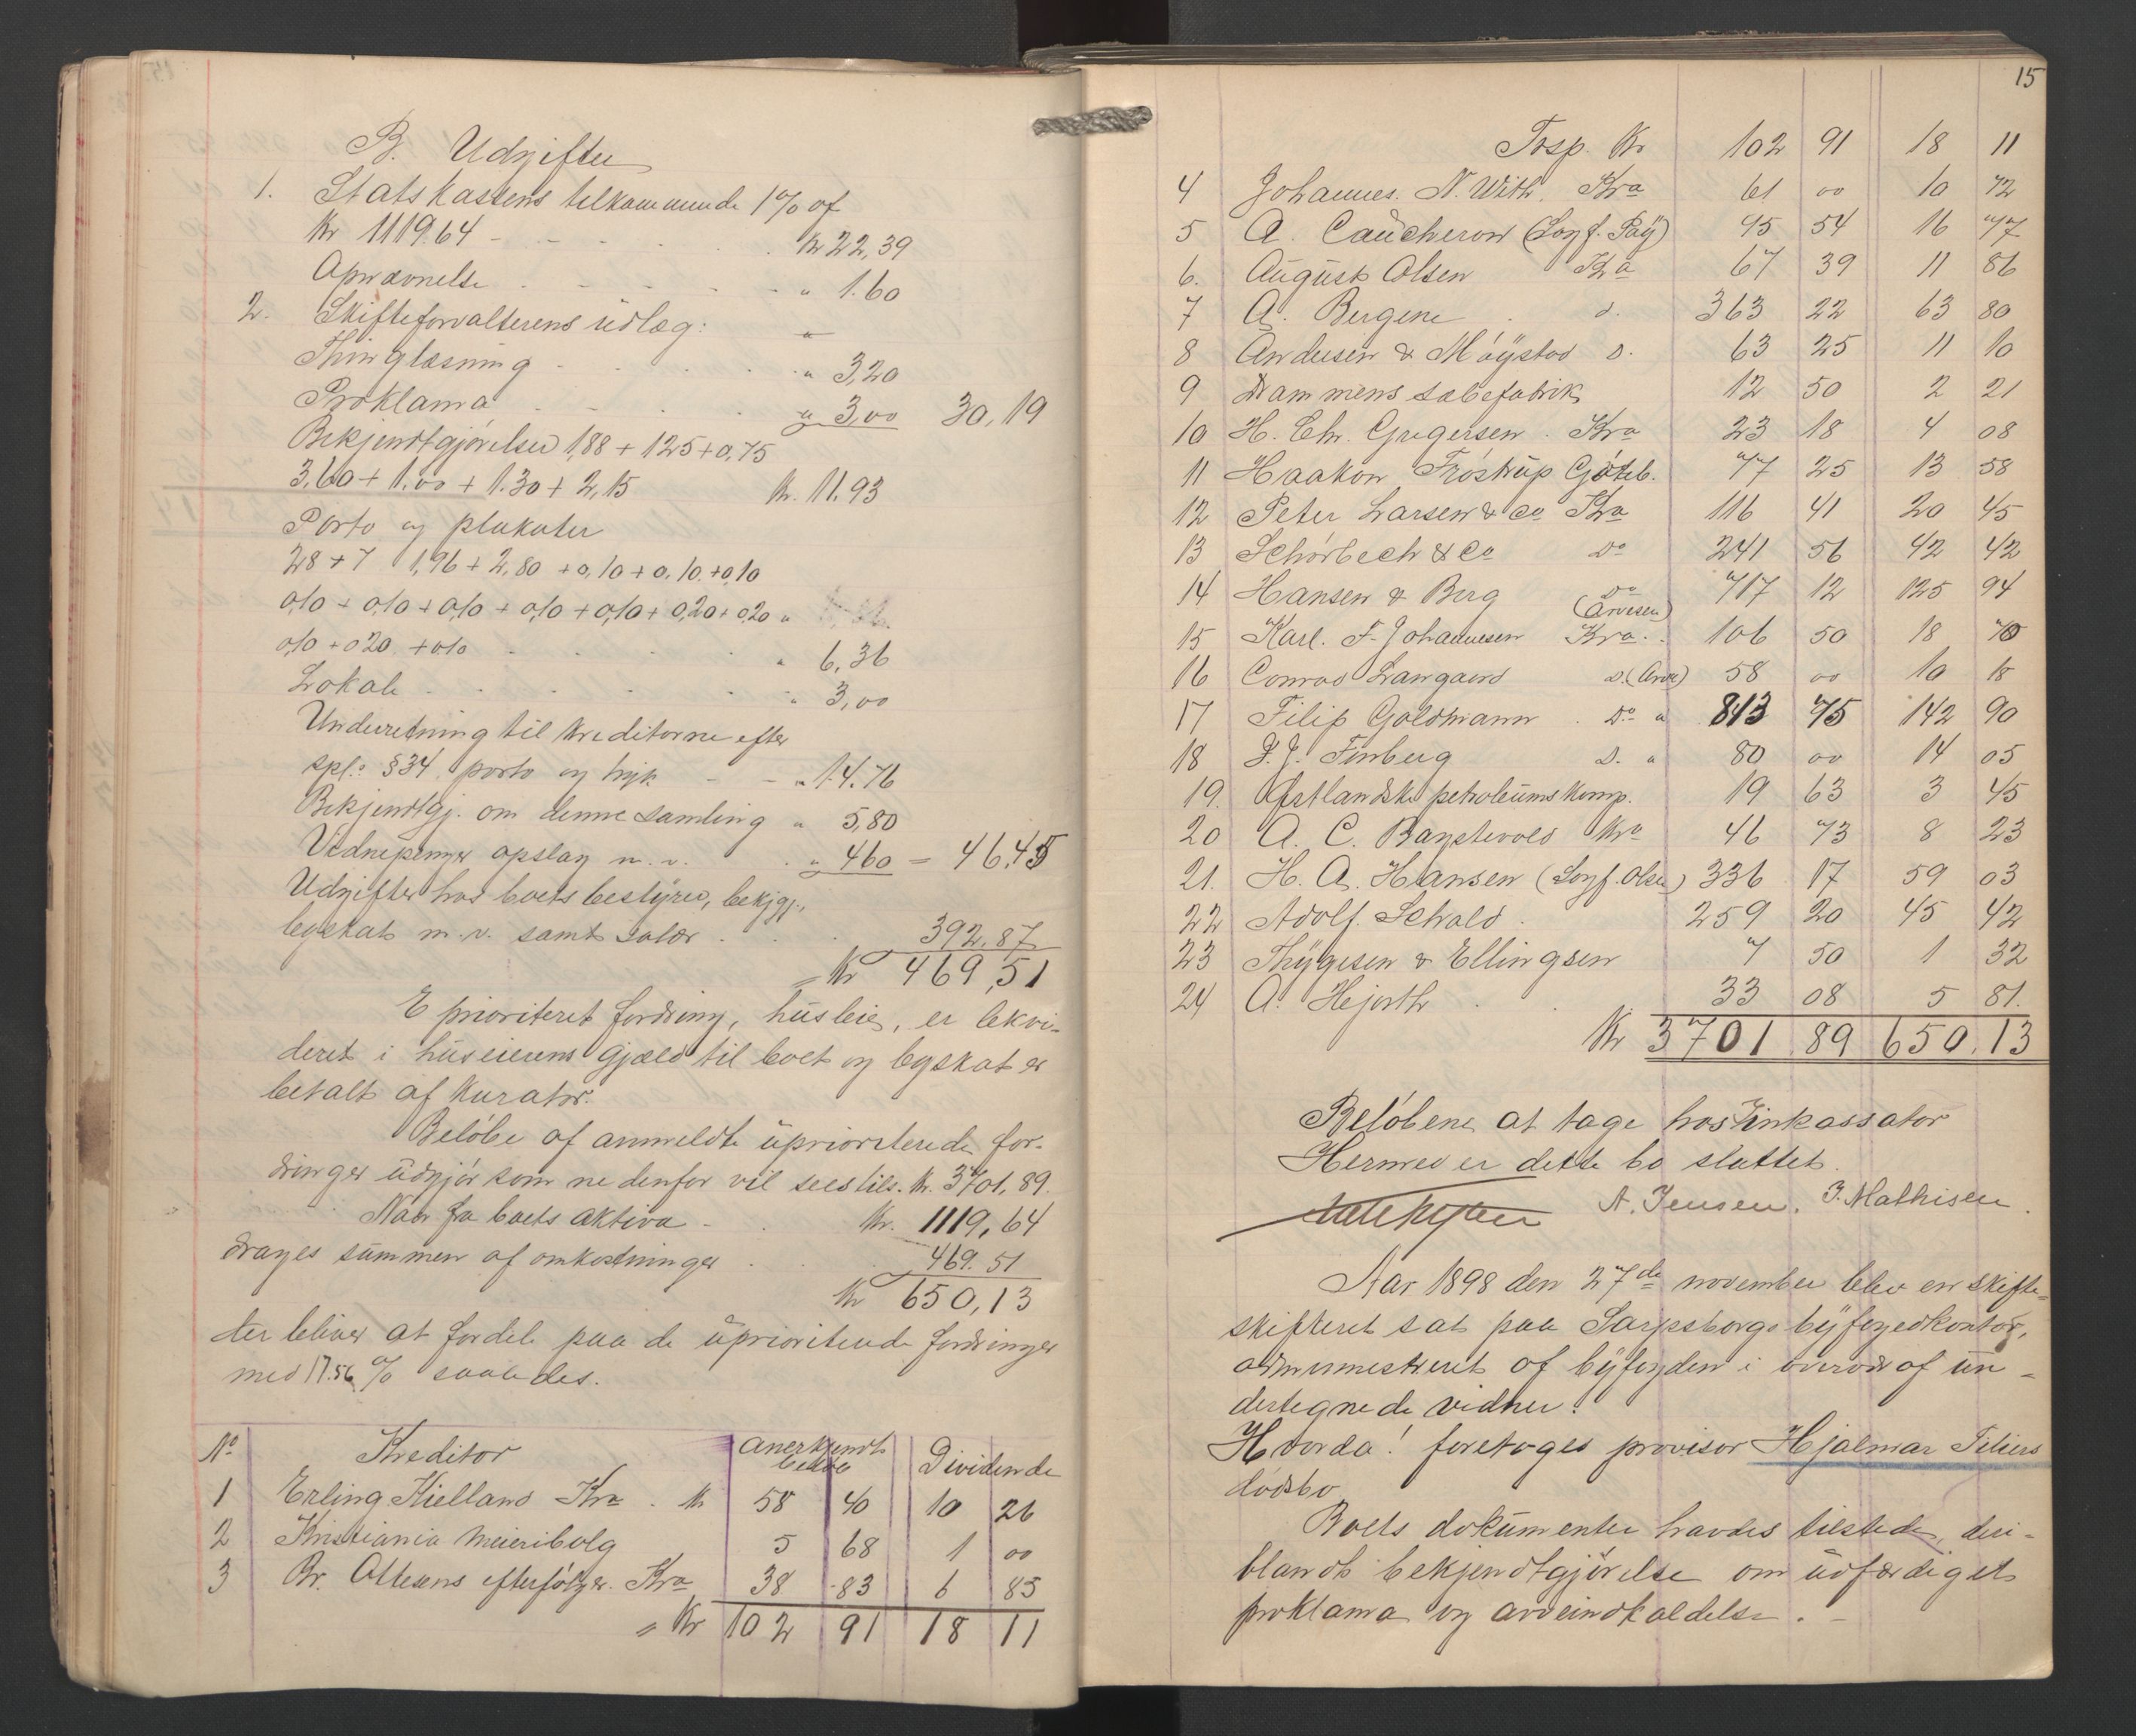 B. Udgifter
1. Statskassens tilkommende 1% of
Kr 1119.64 - - - - Kr 22,39
Opnævnelse - - - - " 1.60
2. Skifteforvalterens udlæg: "
Thinglæsning - - - " 3,20
Proklama - - - " 3,00 30,19
Bekjendtgjørelser 1,88 + 1 25 + 0,75
3,60 + 1.00 + 1.30 + 2,15 Kr. 11,93
Porto og plakater
28 + 7 1,96 + 2,80 + 0,10 + 0,10 + 0,10
0,10 + 0,10 + 0,10 + 0,10 + 0,10 + 0,20 + 0,20 "
0,10 + 0 20 + 0,10 - - - " 6,36
Lokale - - - " 3,00
Underretning til kreditorne efter
spl. § 34, porto og tryk - - " 14.76
Bekjendtgj. om denne samling " 5,80
Vidnepenger opslag m. v. " 4 60 = 46,45
Udgifter hos boets bestyrer, bekjgj.,
byskat m. v. samt salær . . 392,87
= Kr 469,51
E prioriteret fordring, husleie, er lekvi-
deret i huseierens gjæld til boet og byskat er
betalt af kurator.
Beløbe af anmeldte uprioriterede for-
dringer udgjør som nedenfor vil sees tils. Kr. 3701,89.
Naar fra boets aktiva - . Kr. 1119,64
drages summen af omkostninger . . 469.51
Kr 650,13
der bliver at fordele paa de uprioriterede fordringer
med 17.56 % saaledes.
No Kreditor Anerkjendt beløb Dividende
1 Erling Kielland Kra . Kr 58 40 10 26
2 Kristiania meieribolag 5 68 1 00
3 Br. Ottesens efterfølger. Kra 38 83 6 85
= Kr 102 91 18 11
15
Trsp. Kr 102 91 18 11
4 Johannes. N. With. Kra 61 00 10 72
5 A. Caucheron (Sagf. Pay) 95 54 16 77
6. August Olsen Kra 67 39 11 86
7 A. Bergene . d. 363 22 63 80
8 Andersen & Møystad d. 63 25 11 10
9 Dammens sæbefabrik 12 50 2 21
10 H. Chr. Gregersen . Kra 23 18 4 08
11 Haakon Frøstrup Gøteb. 77 25 13 58
12 Peter Larsen & Co Kra 116 41 20 45
13 Schørbech & Co Do 241 56 42 42
14 Hansen & Berg Do 717 12 125 94
15 Karl. F. Johannesen Kra. (Arvesen) 106 50 18 70
16 Conrad Langaard d. (Arve) 58 00 10 18
17 Filip Goldmann . Do " 813 75 142 90
18 J. J. Finberg D. " 80 00 14 05
19. Østlandske petroleumskomp. 19 63 3 45
20 A. C. Bangstevold Kra 46 73 8 23
21. H. A. Hansen (Sagf. Olsen) 336 17 59 03
22 Adolf Schald . 259 20 45 42
23 Thygesen & Ellingsen 7 50 1 32
24 A. Hejorth . . 33 08 5 81.
Kr 3701 89 650.13
Beløbene at tage hos Inkassator
Hermed er dette bo sluttet.
A. Jensen. J. Mathisen.
Aar 1898 den 27de november blev en skifte-
skifteret sat paa Sarpsborgs byfogedkontor,
administreret af byfogden i overvær af un-
dertegnede vidner.
Hvorda! foretoges provisor Hjalmar Tiliers
dødsbo
Boets dokumenter havdes tilstede, deri-
blandt bekjendtgjørelse om udfærdiget
proklama og arveindkaldelse. -